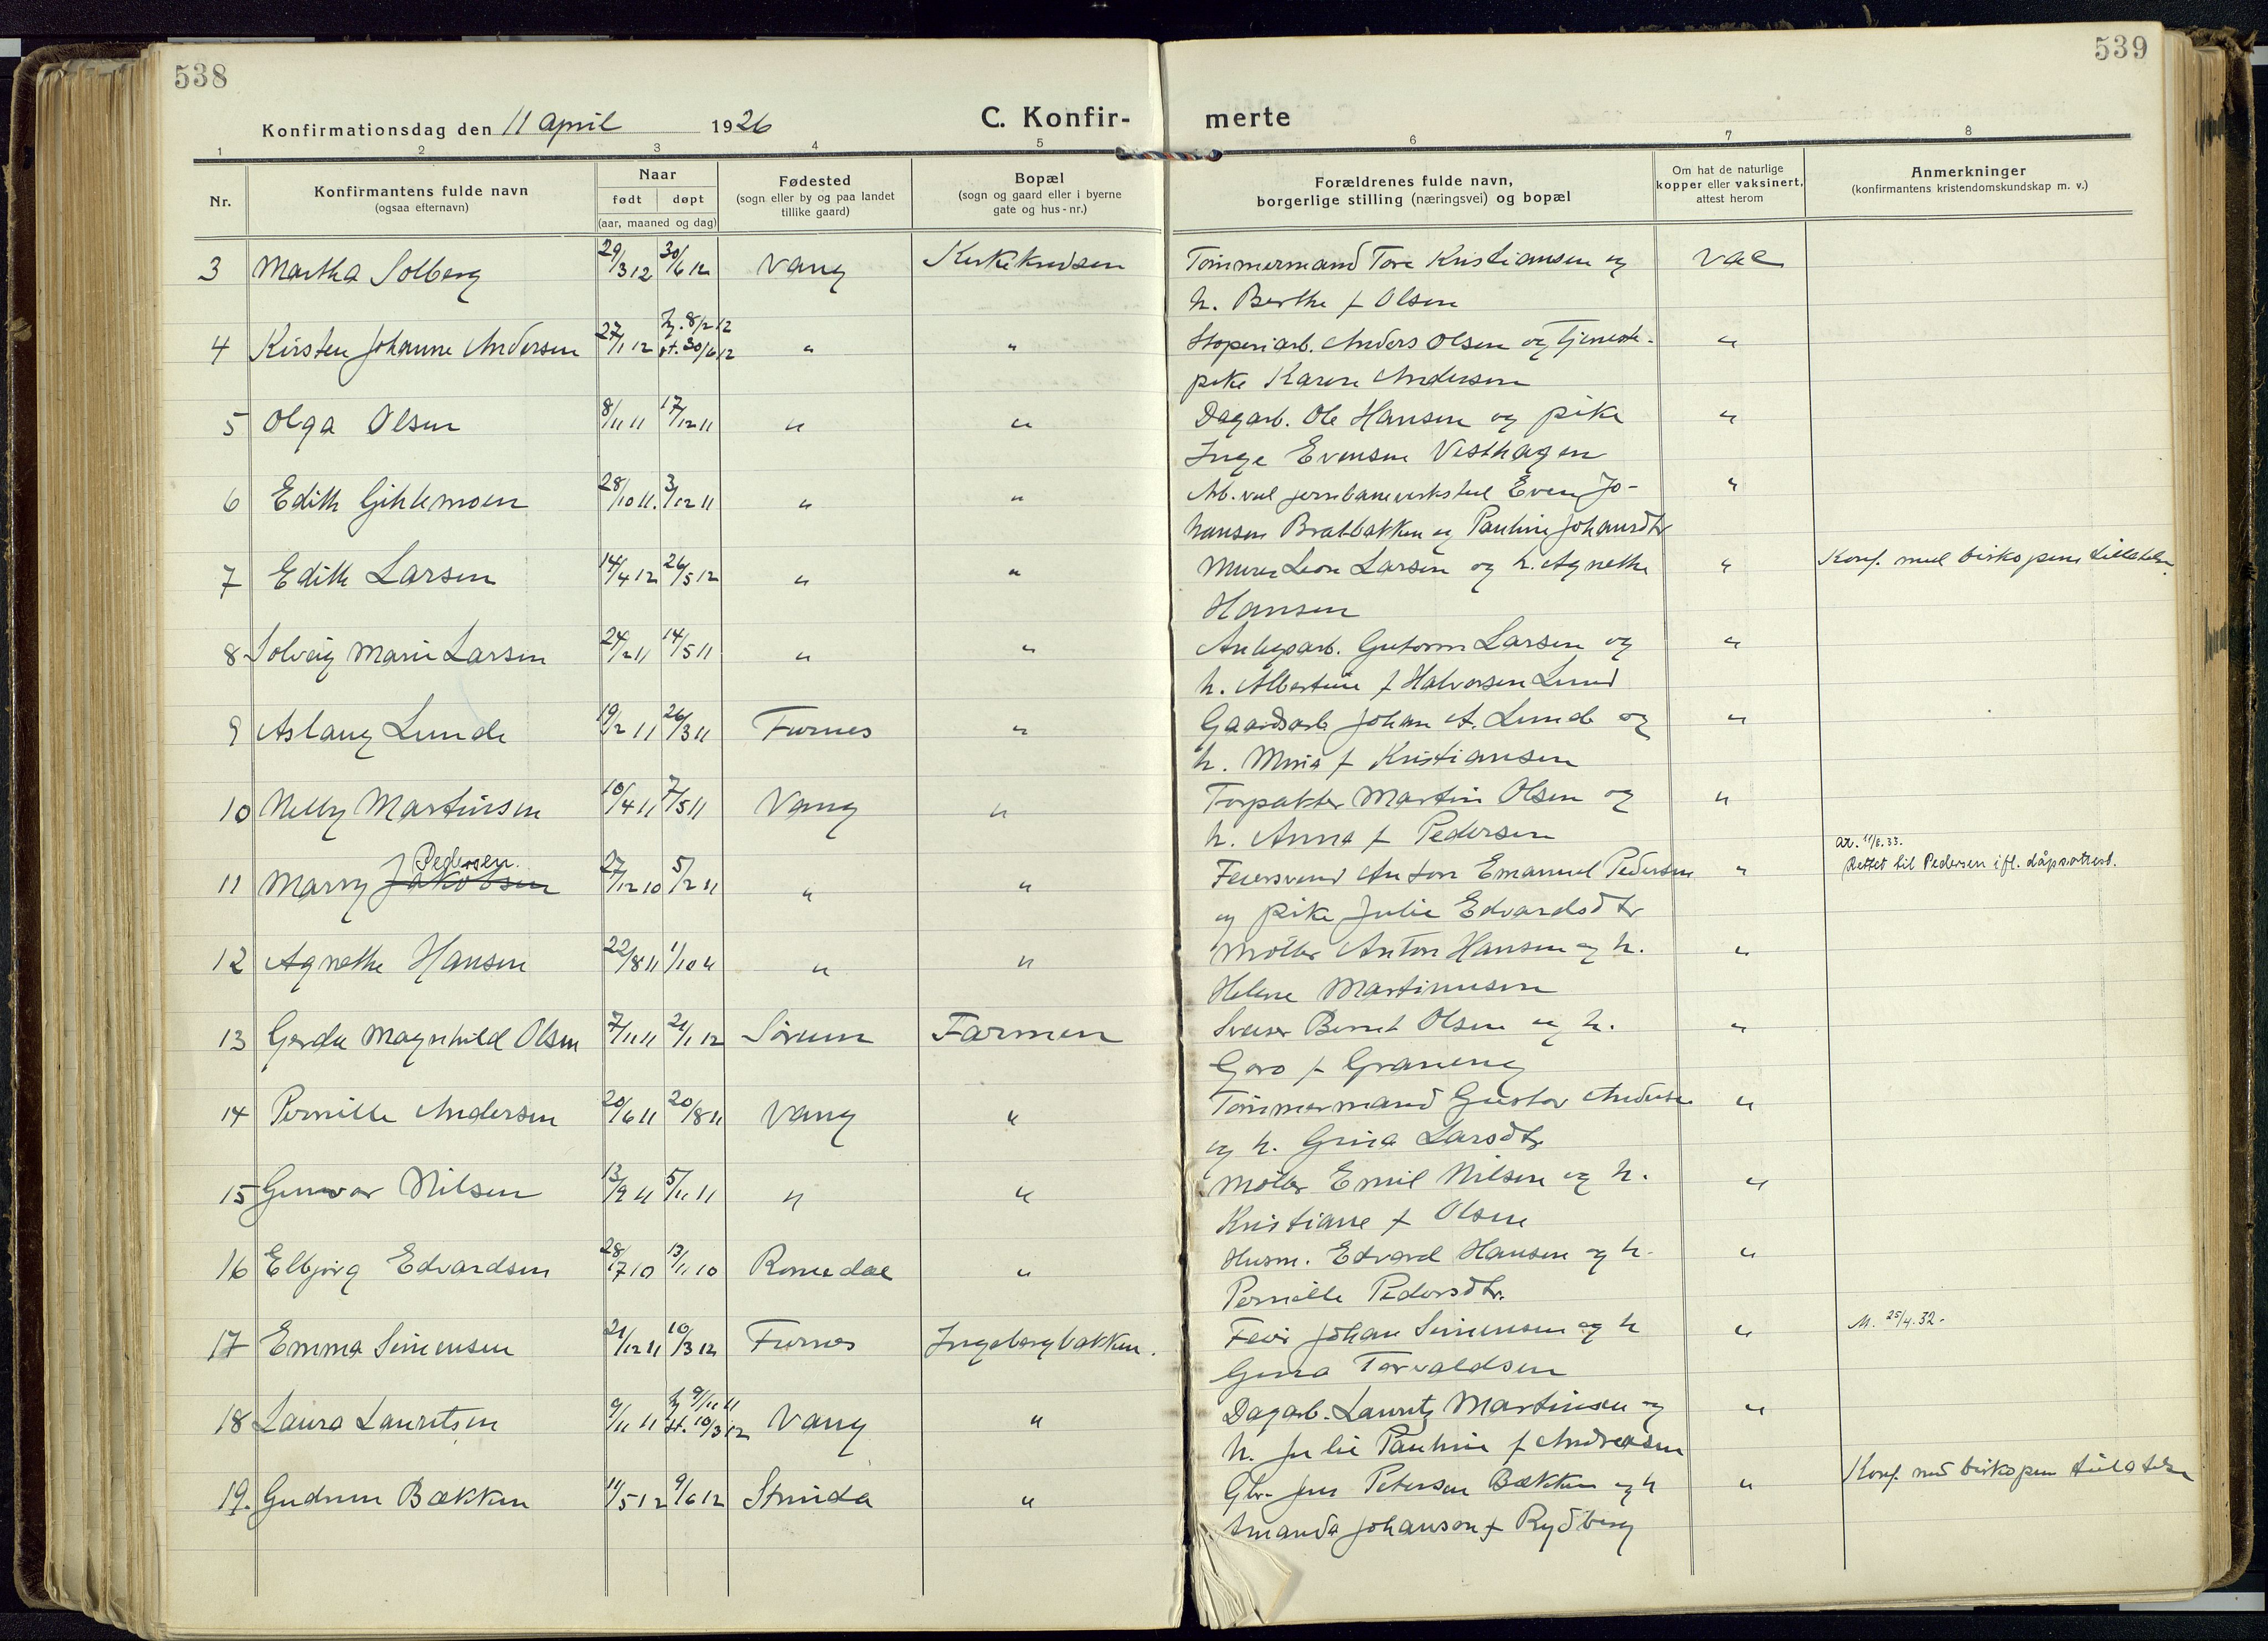 538
539
Konfirmationsdag den 11 april 1926
C. Konfir- merte
1 2 3 4 5 6 7 8
Nr.
Konfirmantens fulde navn
(ogsaa efternavn)
Naar
født døpt
(aar, maaned og dag)
Fødested
(sogn eller by og paa landet
tillike gaard)
Bopæl
(sogn og gaard eller i byerne
gate og hus-nr.)
Forældrenes fulde navn,
borgerlige stilling (næringsvei) og bopæl
Om hat de naturlige
kopper eller vaksinert,
attest herom
Anmerkninger
(konfirmantens kristendomskundskap m. v.)
3 Martha Solberg 29/3 12 30/6 12 Vang Tømmermand Tore Kristiansen og vac
h. Berthe f Olsen
4 Kirsten Johanne Andersen 27/1 12 hj. 8/2 12 st. 30/6 12 " " Anders Olsen og Tjeneste- "
pike Karen Andersen
5 Olga Olsen 8/11 11 17/12 11 " " Dagarb. Ole Hansen og pike "
Inga Evensen Vesthagen
6 Edith Gihlemoen 28/10 11. 3/12 11 " " Arb. ved jernbaneverksted Even Jo- "
hansen Bratbakken og Pauline Johansdtr
7 Edith Larsen 14/4 12 26/5 12 " " Murer Leon Larsen og h. Agnethe " Konf. med biskopens tillatelse
Hansen
8 Solveig Marie Larsen 24/2 11 14/5 11 " " Anlegsarb. Gutorm Larsen og "
h. Albertine f Halvorsen Lund
9 Aslaug Lunde 19/2 11 26/3 11 Furnes " Gaardsarb Johan A. Lunde og "
h. Mina f Kristiansen
10 Nelly Martinsen 10/4 11 7/5 11 Vang " Torpakter Martin Olsen og "
h. Anna f Pedersen
11 Marry Jakobsen Pedersen. 27/12 10 5/2 11 " " Feiersvend Anton Emanuel Pedersen " av. 11/8.33.
Rettet til Pedersen ifl. dåpsattest.
og pike Julie Edvardsdtr
12 Agnethe Hansen 22/8 11 1/10 11 " " Møller Anton Hansen og h. "
Helene Martinusen
13 Gerda Magnhild Olsen 7/11 11 21/1 12 Sørum Farmen Sveiser Bernt Olsen og h. "
Goro f Graneng
14 Pernille Andersen 20/6 11 20/8 11 Vang " Tømmermand Gustav Andersen "
og h. Grina Larsdtr
15 Gunvor Nilsen 13/9 11 5/11 11 " " Møller Emil Nilsen og h. "
Kristiane f Olsen
16 Elbjørg Edvardsen 28/7 10 13/11 10 Romedal " Husm. Edvard Hansen og h. "
Pernille Pedersdtr.
17 Emma Simensen 21/12 11 10/3 12 Furnes Ingebergbakken. Feier Johan Simensen og h " M. 25/4.32.
Gina Torvaldsen
18 Laura Lauritsen 9/11 11 hj 9/11 11 st. 10/3 12 Vang " Dagarb. Lauritz Martinsen og "
h. Julie Pauline f Andreasen
19. Gudrun Bækken 11/5 12 9/6 12 Strinda " Gbr. Jens Petersen Bækken og h " Konf. med biskopens tillatelse
Amanda Johanson f Rydberg